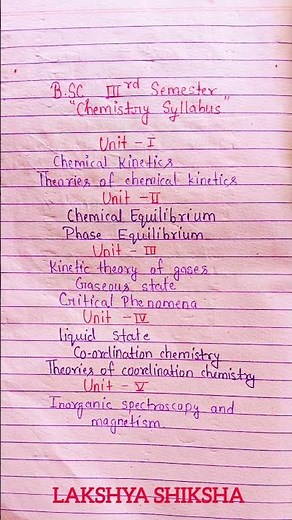 B.SC IIIrd Semester
"Chemistry Syllabus"
Unit - I
Chemical Kinetics
Theories of chemical kinetics
Unit - II
Chemical Equilibrium
Phase Equilibrium
Unit - III
Kinetic theory of gases
Gaseous state
Critical Phenomena
Unit - IV
liquid state
Co-ordination chemistry
Theories of coordination chemistry
Unit - V
Inorganic spectroscopy and
magnetism
LAKSHYA SHIKSHA